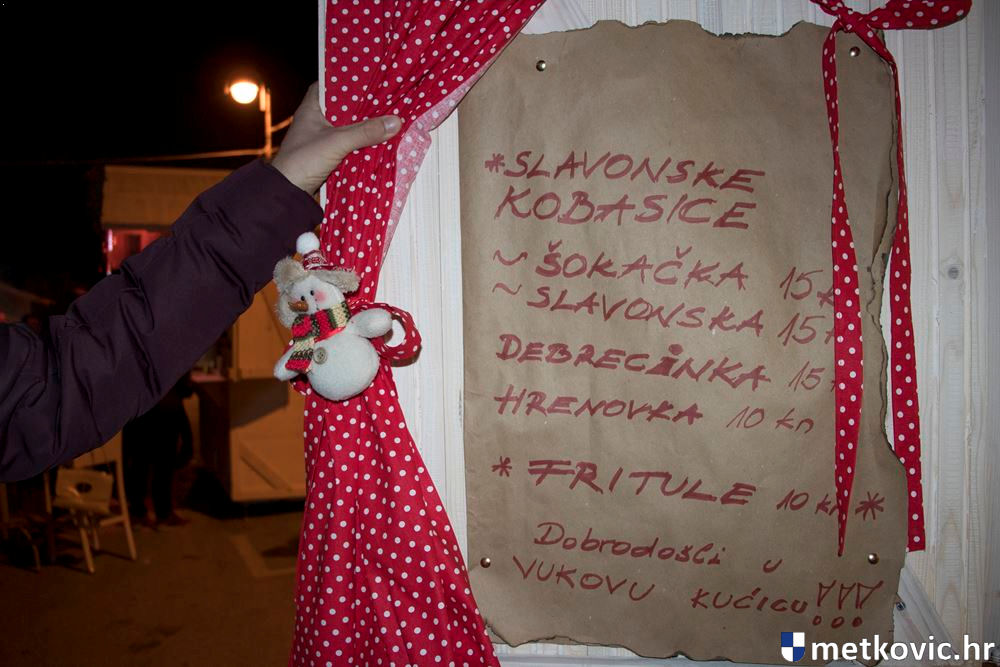 *SLAVONSKE
KOBASICE
~ ŠOKAČKA 15 k
~ SLAVONSKA 15
DEBRECINKA 15
HRENOVKA 10 kn
* FRITULE 10 kn *
Dobrodošli u
VUKOVU KUĆICU !!!
metkovic.hr